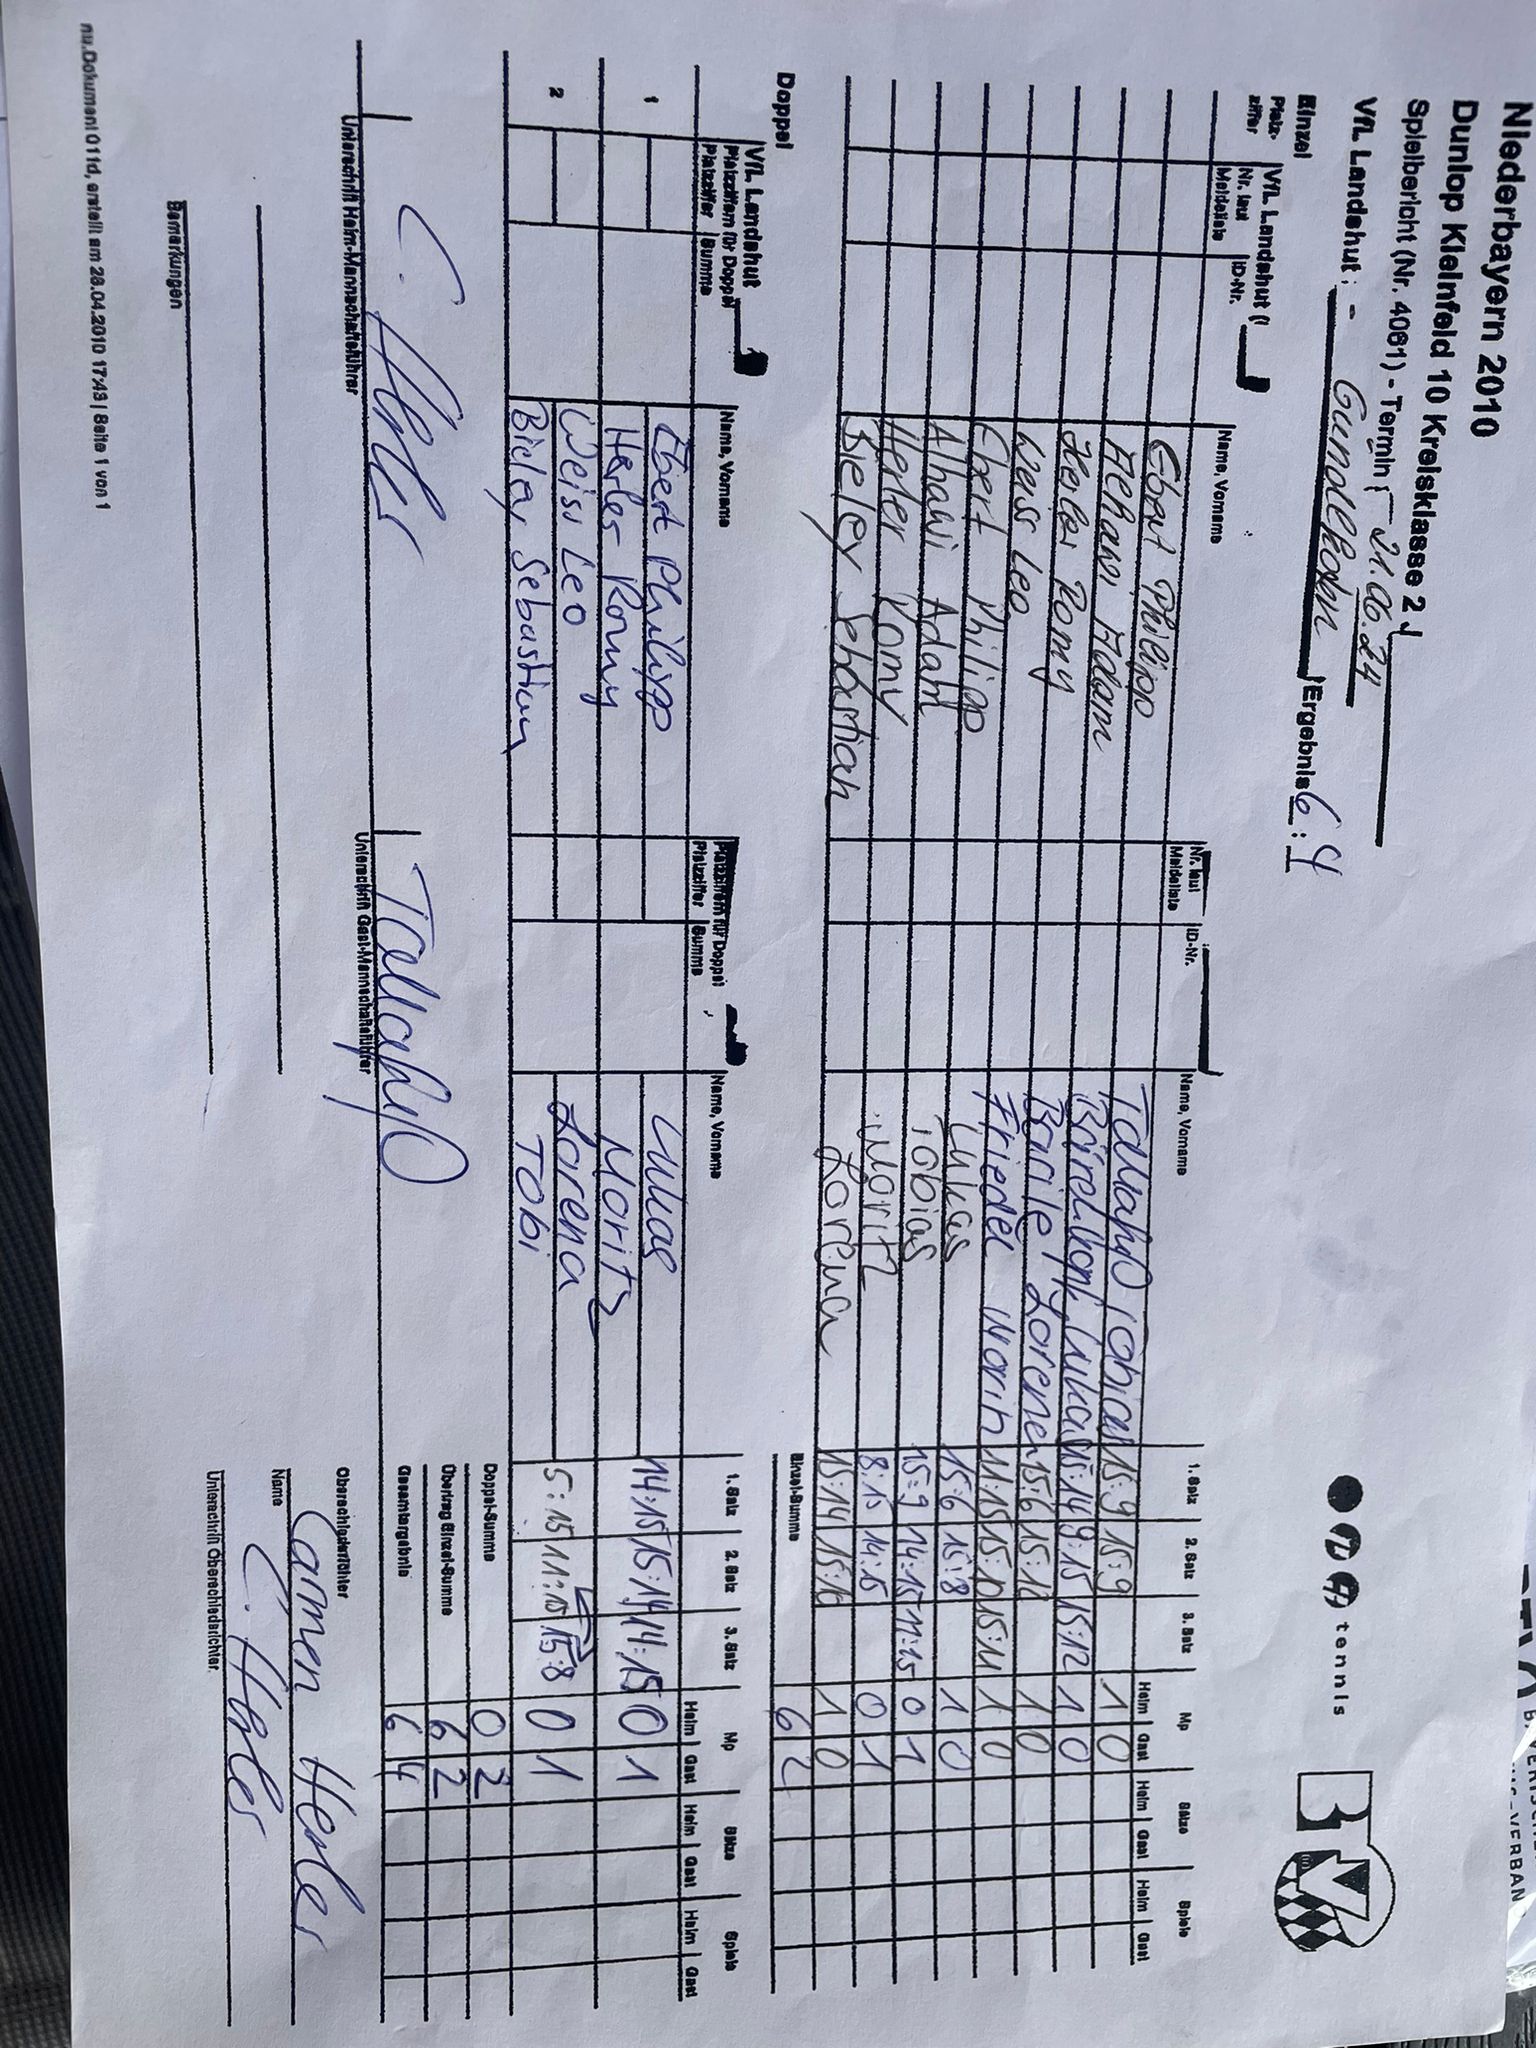 Niederbayern 2010
Dunlop Kleinfeld 10 Kreisklasse 2
Spielbericht (Nr. 4061) - Termin 21.06.24
VfL Landshut : - Gundelkofen Ergebnis 6 : 4
tennis
BTV
Einzel
VfL Landshut
Platz-ziffer Nr. laut Meldeliste ID-Nr. Name, Vorname Nr. laut Meldeliste ID-Nr. Name, Vorname 1. Satz 2. Satz 3. Satz Mp Sätze Spiele
Heim Gast Heim Gast Heim Gast
Ebert Philipp Tobias 15:9 15:9 1 0
Alhawi Adam Lukas 15:14 9:15 15:12 1 0
Herles Romy Lorena 15:6 15:12 1 0
Weiss Leo Friedel Moritz 11:15 15:10 15:11 1 0
Ebert Philipp Lukas 15:6 15:8 1 0
Alhawi Adam Tobias 15:9 14:15 11:15 0 1
Herles Romy Moritz 8:15 14:15 0 1
Bieley Sebastian Lorena 15:14 15:10 1 0
Einzel-Summe 6 2
Doppel
VfL Landshut
Platzziffern für Doppel
Platzziffer Summe Name, Vorname Platzziffer Summe Name, Vorname 1. Satz 2. Satz 3. Satz Mp Sätze Spiele
Heim Gast Heim Gast Heim Gast
1 Ebert Philipp Lukas 14:15 15:14 14:15 0 1
Herles Romy Moritz
2 Weiss Leo Lorena 5:15 11:15 15:8 0 1
Bieley Sebastian Tobi
Doppel-Summe 0 2
Übertrag Einzel-Summe 6 2
Gesamtergebnis 6 4
C. Herles
Unterschrift Heim-Mannschaftsführer Unterschrift Gast-Mannschaftsführer
Oberschiedsrichter
Carmen Herles
Name
C. Herles
Unterschrift Oberschiedsrichter
Bemerkungen
nu.Dokument 011d, erstellt am 28.04.2010 17:43 | Seite 1 von 1